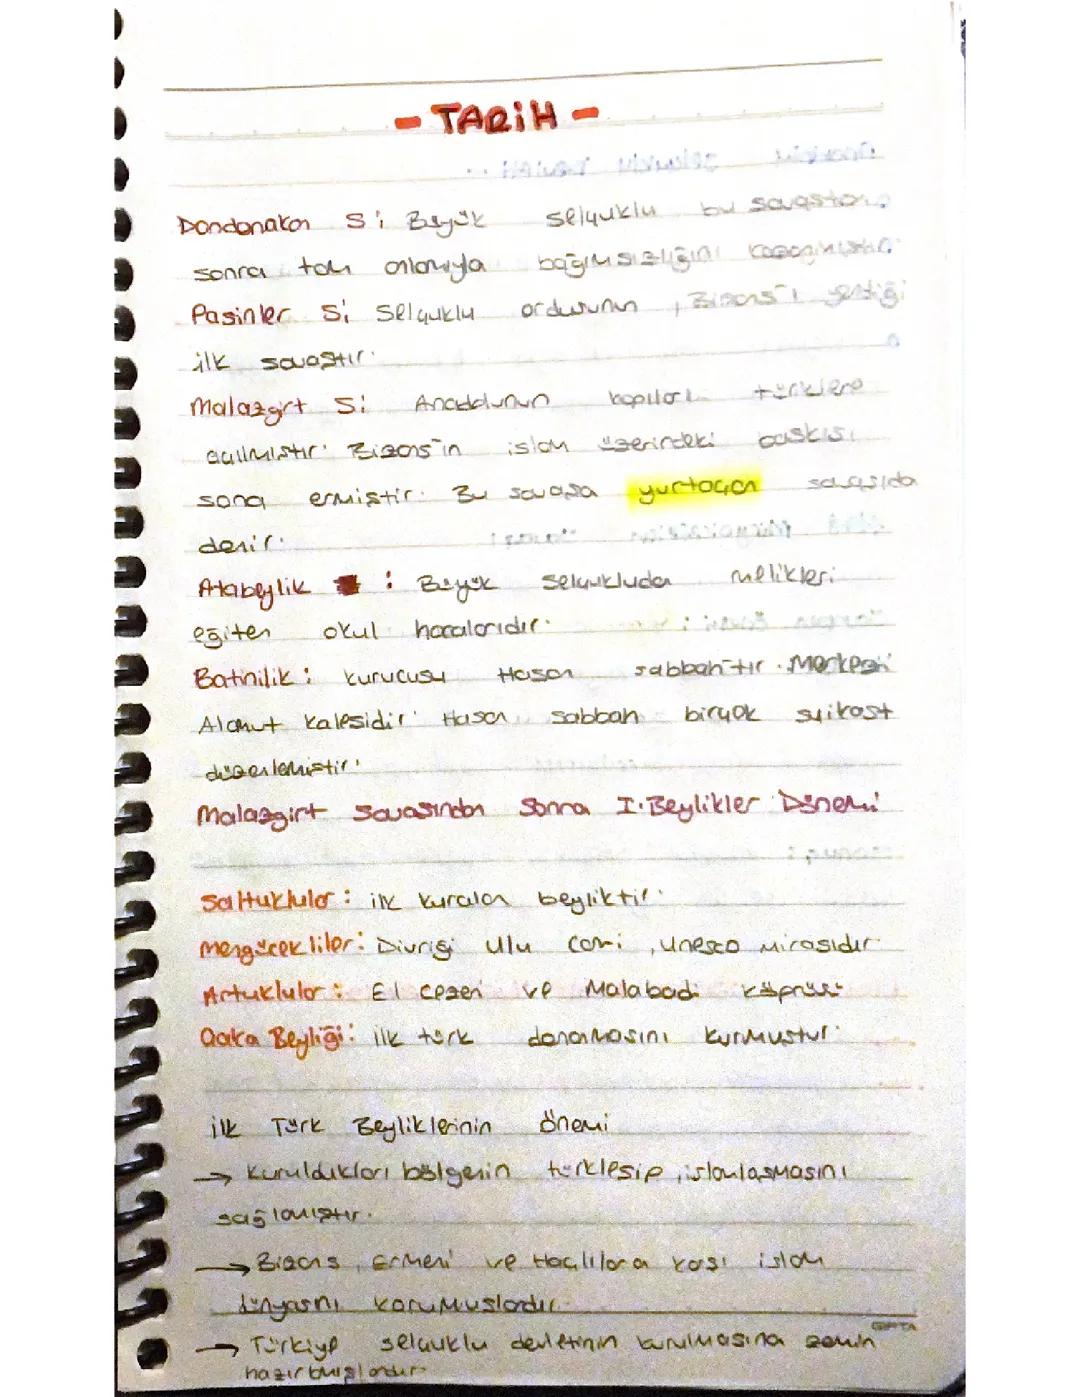 - TARİH -
Dandanakan S: Büyük Selçuklu bu savaştan
sonra tam anlamıyla bağımsızlığını kazanmıştır.
Pasinler S: Selçuklu ordusunun, Bizans'ı yendiği
ilk savaştır.
Malazgirt S: Anadolunun kapıları türklere
açılmıştır. Bizans'ın islam üzerindeki baskısı
sona ermiştir. Bu savaşa yurtaçan savaşıda
denir.
Atabeylik : Büyük Selçukluda melikleri
eğiten okul hocalarıdır.
Batinilik : kurucusu Hasan sabbah'tır. Merkezi
Alamut kalesidir. Hasan sabbah birçok suikast
düzenlemiştir.
Malazgirt Savaşından Sonra I. Beylikler Dönemi
Saltuklular : ilk kurulan beyliktir.
Mengücekliler : Divriği Ulu Cami, unesco mirasıdır.
Artuklular : El Cezeri ve Malabadi köprüsü
Çaka Beyliği : ilk türk donanmasını kurmuştur.
ilk Türk Beyliklerinin önemi
→ kuruldukları bölgenin türkleşip, islamlaşmasını
sağlamıştır.
→ Bizans, Ermeni ve Haçlılara karşı islam
dünyasını korumuşlardır.
GIPTA
→ Türkiye selçuklu devletinin kurulmasına zemin
hazırlamışlardır